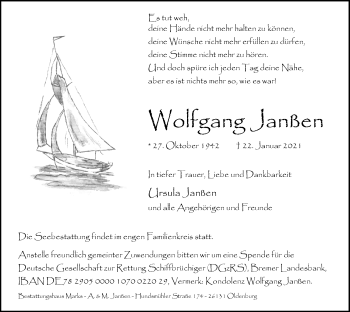 Es tut weh,
deine Hände nicht mehr halten zu können,
deine Wünsche nicht mehr erfüllen zu dürfen,
deine Stimme nicht mehr zu hören.
Und doch spüre ich jeden Tag deine Nähe,
aber es ist nichts mehr so, wie es war!
Wolfgang Janßen
* 27. Oktober 1942 † 22. Januar 2021
In tiefer Trauer, Liebe und Dankbarkeit
Ursula Janßen
und alle Angehörigen und Freunde
Die Seebestattung findet im engen Familienkreis statt.
Anstelle freundlich gemeinter Zuwendungen bitten wir um eine Spende für die
Deutsche Gesellschaft zur Rettung Schiffbrüchiger (DGzRS), Bremer Landesbank,
IBAN DE78 2905 0000 1070 0220 29. Vermerk: Kondolenz Wolfgang Janßen.
Bestattungshaus Marks - A. & M. Janßen - Hundsmühler Straße 174 - 26131 Oldenburg